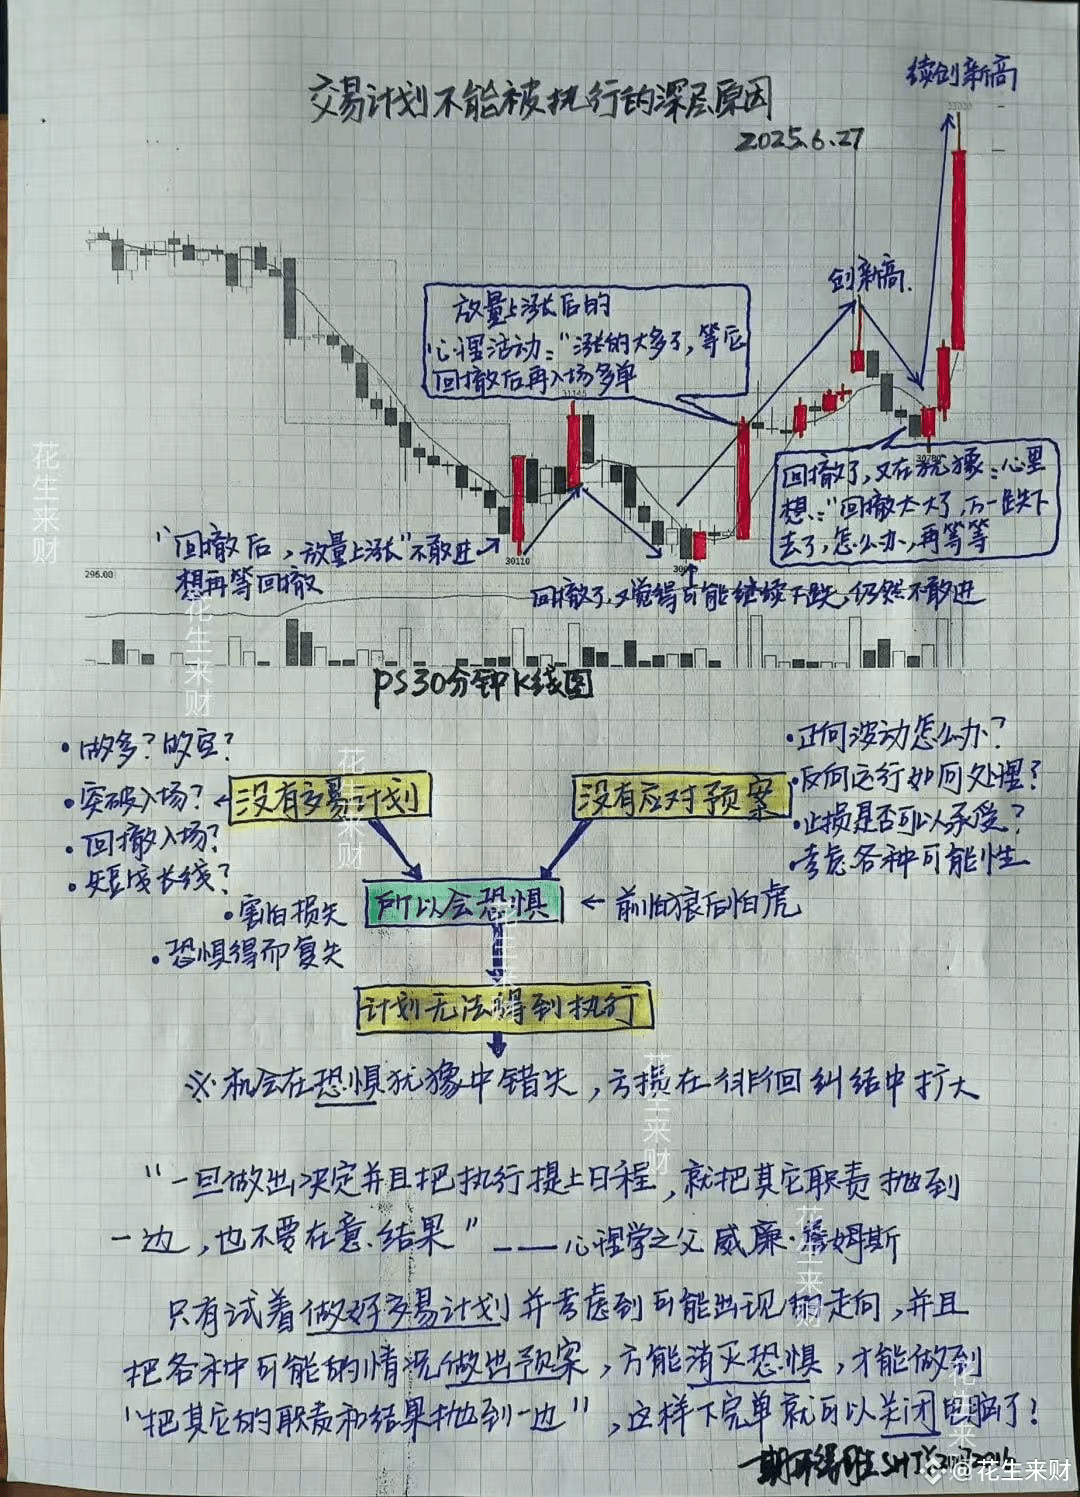 续创新高
33020
交易计划不能被执行的深层原因
2025.6.27
创新高.
放量上涨后的
心理活动："涨的太多了，等后
回撤后再入场多单
31145
30780
回撤了，又在犹豫：心里
想："回撤太大了，万一跌下
去了，怎么办，再等等
"回撤后，放量上涨"不敢进
想再等回撤
30110
回撤了，又觉得可能继续下跌，仍然不敢进
296.00
PS30分钟K线图
·做多？做空？
·突破入场？
·回撤入场？
·短或长线？
没有交易计划
没有应对预案
·正向波动怎么办？
·反向运行如何处理？
·止损是否可以承受？
·考虑各种可能性
·害怕损失
·恐惧得而复失
所以会恐惧
前怕狼后怕虎
计划无法得到执行
※机会在恐惧犹豫中错失，亏损在徘徊纠结中扩大
"一旦做出决定并且把执行提上日程，就把其它职责抛到
一边，也不要在意.结果"——心理学之父 威廉·詹姆斯
只有试着做好交易计划并考虑到可能出现的走向，并且
把各种可能的情况做出预案，方能消灭恐惧，才能做到
"把其它的职责和结果抛到一边"，这样下完单就可以关闭电脑了！
花生来财
花生来财
花生来财
花生来财
花生来财
花生来财
@花生来财